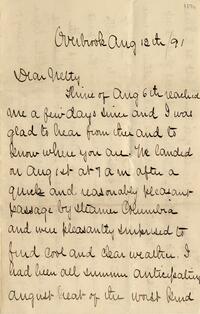 Overbrook Aug 12th / 91
Dear Netty
Thine of Aug 6th reached
me a few days since and I was
glad to hear from thee and to
know where you are. We landed
on Aug 1st at 7 am after a
quick and reasonably pleasant
passage by Steamer Columbia
and were pleasantly surprised to
find cool and clear weather. I
had been all summer anticipating
august heat of the worst kind